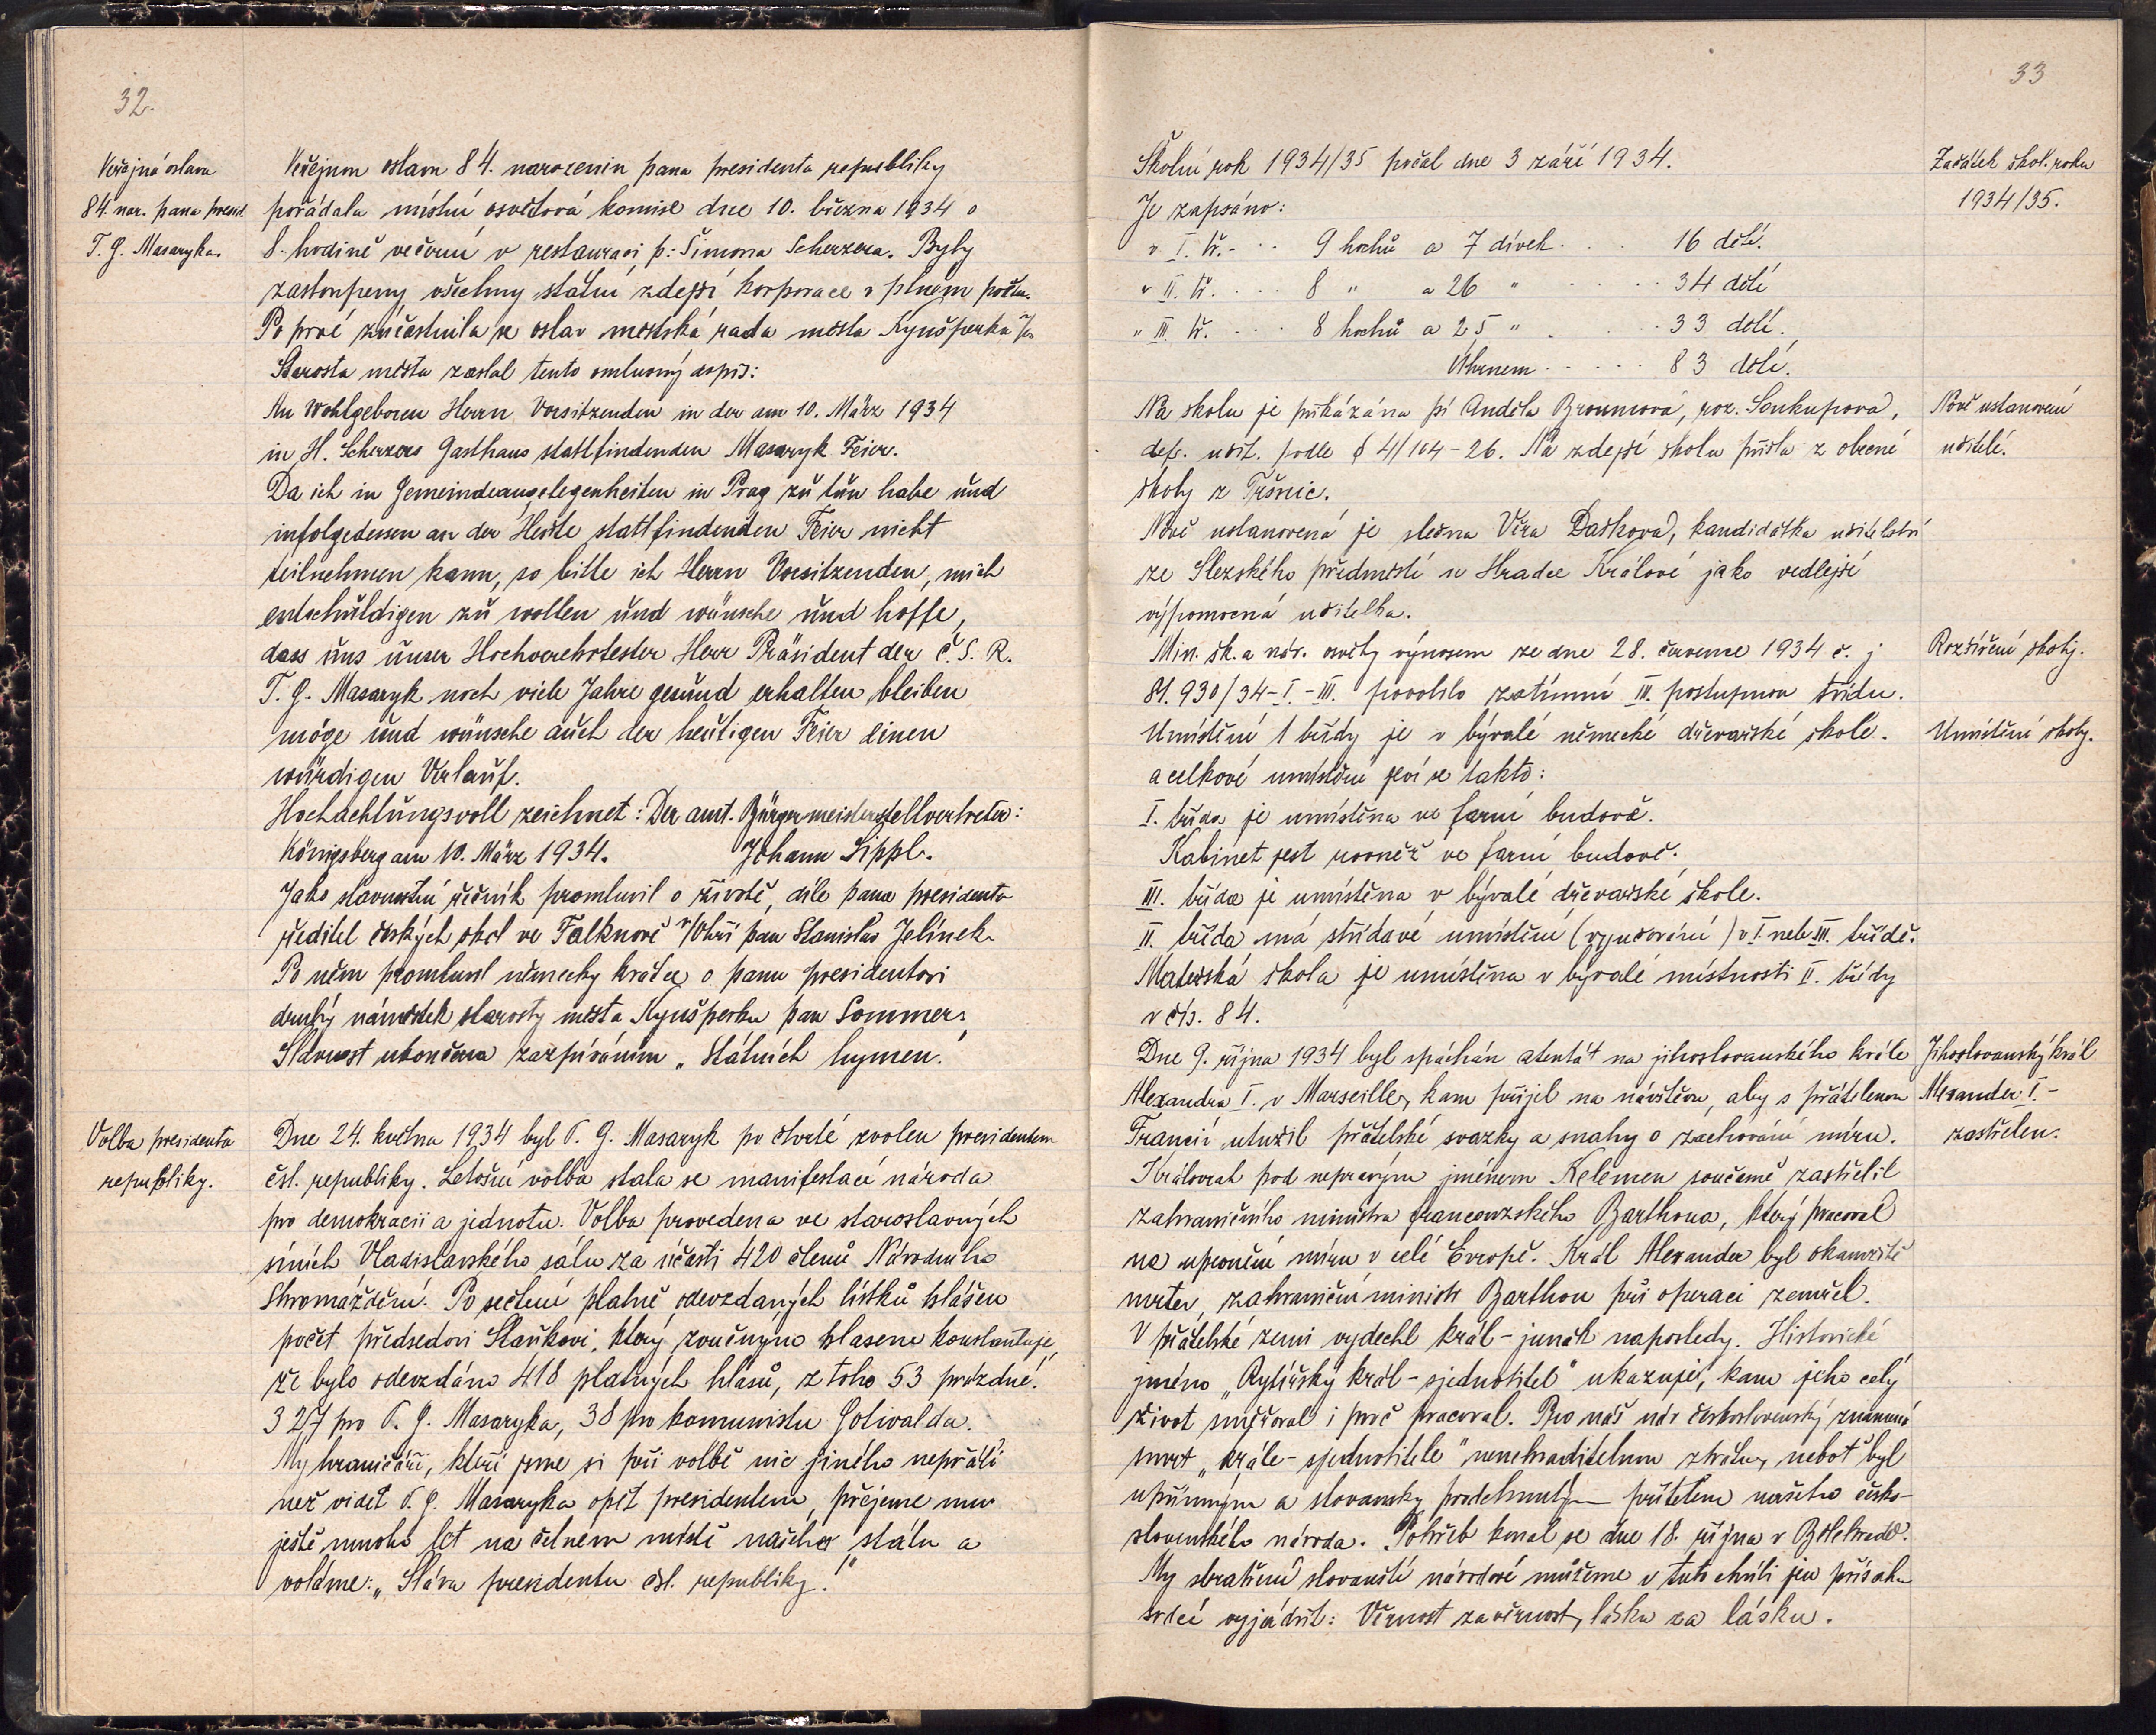 32.
Veřejná oslava
84. nar. pana presid.
T. G. Masaryka.
Veřejnou oslavu 84. narozenin pana presidenta republiky
pořádala místní osvětová komise dne 10. března 1934 o
8. hodině večerní v restauraci p: Šimona Scherzera. Byly
zastoupeny všechny státní zdejší korporace v plném počtu.
Po prvé zúčastnila se oslav městská rada města Kynšperka
Starosta města zaslal tento omluvný dopis:
An Wohlgeboren Herrn Vorsitzenden in der am 10. März 1934
in H. Scherzers Gasthaus stattfindenden Masaryk Feier.
Da ich in Gemeindeangelegenheiten in Prag zu tun habe und
infolgedessen an der Heute stattfindenden Feier nicht
teilnehmen kann, so bitte ich Herrn Vorsitzenden, mich
entschuldigen zu wollen und wünsche und hoffe,
dass uns unser Hochverehrtester Herr Präsident der Č. S. R.
T. G. Masaryk noch viele Jahre gesund erhalten bleiben
möge und wünsche auch der heutigen Feier einen
würdigen Verlauf.
Hochachtungsvoll zeichnet: Der amt. Bürgermeisterstellvertreter:
Königsberg am 10. März 1934. Johann Lippl.
Jako slavnostní řečník promluvil o životě, díle pana presidenta
ředitel českých škol ve Falknově n/Ohří pan Stanislav Jelínek.
Po něm promluvil německy krátce o panu presidentovi
druhý náměstek starosty města Kynšperku pan Sommer.
Slavnost ukončena zazpíváním „Státních hymen.“
Volba presidenta
republiky.
Dne 24. května 1934 byl T. G. Masaryk po čtvrté zvolen presidentem
čsl. republiky. Letošní volba stala se manifestací národa
pro demokracii a jednotu. Volba provedena ve staroslavných
síních Vladislavského sálu za účasti 420 členů Národního
Shromáždění. Po sečtení platně odevzdaných lístků hlášen
počet předsedovi Staňkovi, který zvučným hlasem konstatuje,
že bylo odevzdáno 418 platných hlasů, z toho 53 prázdné.
327 pro T. G. Masaryka, 38 pro komunistu Gotwalda.
My hraničáři, kteří jsme si při volbě nic jiného nepřáli
než vidět T. G. Masaryka opět presidentem, přejeme mu
ještě mnoho let na čelném místě našeho státu a
voláme: „Sláva presidentu čsl. republiky.“
33
Školní rok 1934/35 počal dne 3 září 1934.
Začátek škol. roku
1934/35.
Je zapsáno:
v I. tř. - . . 9 hochů a 7 dívek . . . 16 dětí.
v II. tř. . . . . 8 " a 26 " . . . . . 34 dětí
" III tř. . . . . 8 hochů a 25 " . . . . 33 dětí.
Úhrnem . . . . . 83 dětí.
Na školu je přikázána pí Anděla Brounová, roz. Soukupová,
Nově ustanovení
def. učit. podle § 4/104-26. Na zdejší školu přišla z obecné
učitelé.
školy z Tršnic.
Nově ustanovená je slečna Věra Dašková, kandidátka učitelství
ze Slezského předměstí u Hradce Králové jako vedlejší
výpomocná učitelka.
Min. šk. a nár. osvěty výnosem ze dne 28. července 1934 č. j
Rozšíření školy.
81.930/34-I.-III. povolilo zatímní III. postupnou třídu.
Umístění 1 třídy je v bývalé německé dřevařské škole.
Umístění školy.
a celkové umístění jeví se takto:
I. třída je umístěna ve farní budově.
Kabinet jest rovněž ve farní budově.
III. třída je umístěna v bývalé dřevařské škole.
II. třída má střídavé umístění (vyučování) v I. neb III. třídě.
Mateřská škola je umístěna v bývalé místnosti II. třídy
v čís. 84.
Dne 9. října 1934 byl spáchán atentát na jihoslovanského krále
Jihoslovanský král
Alexandra I. v Marseille, kam přijel na návštěvu, aby s přátelskou
Alexander I. -
Francií utužil přátelské svazky a snahy o zachování míru.
zastřelen.
Královrah pod nepravým jménem Kelemen současně zastřelil
zahraničního ministra francouzského Barthoua, který pracoval
na upevnění míru v celé Evropě. Král Alexander byl okamžitě
mrtev, zahraniční ministr Barthou při operaci zemřel.
V přátelské zemi vydechl král - junák naposledy. Historické
jméno „Rytířský král - sjednotitel“ ukazuje, kam jeho celý
život směřoval i proč pracoval. Pro náš nár československý znamená
smrt „krále-sjednotitele“ nenahraditelnou ztrátu, neboť byl
upřímným a slovansky prodchnutým přítelem našeho česko-
slovenského národa. Pohřeb konal se dne 18. října v Bělehradě.
My sbratření slovanští národové můžeme v tuto chvíli jen přísahu
srdcí vyjádřit: Věrnost za věrnost, lásku za lásku.